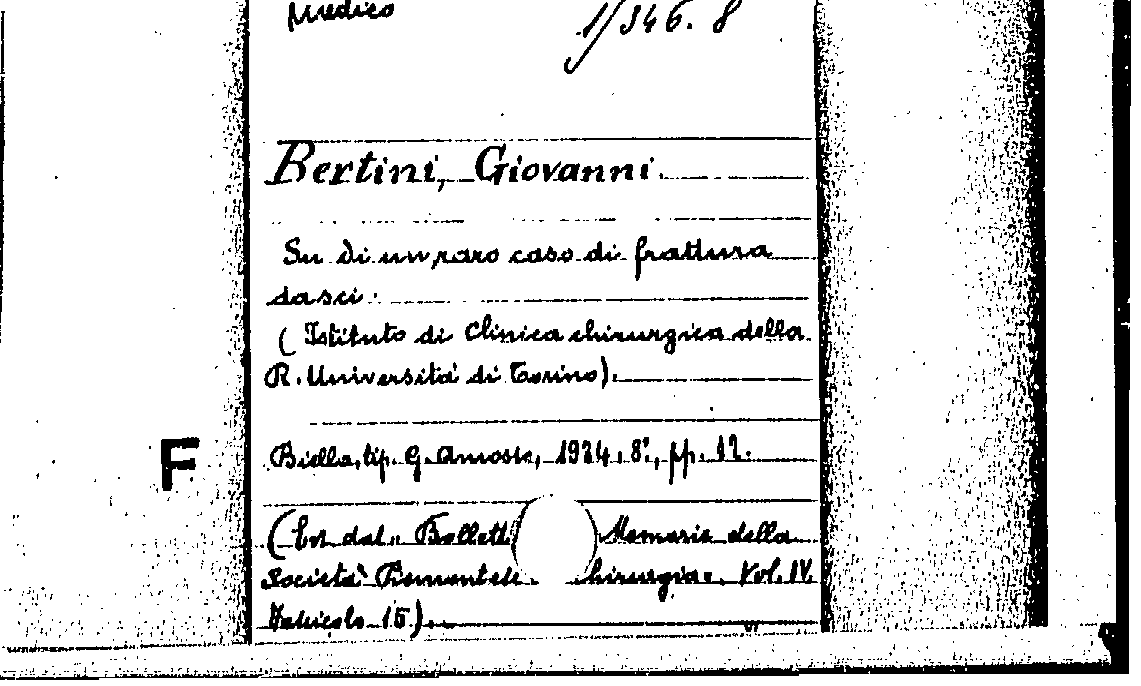 Medico 1/346. 8
Bertini, Giovanni.
Su di un raro caso di frattura
d'asci.
( Istituto di Clinica chirurgica della
R. Università di Torino).
F
Biella, tip. G. Amosso, 1934, 8°, pp. 12.
(Est. dal " Bollett Memorie della
Società Piemontese hirurgia". Vol. IV.
Fascicolo 15).